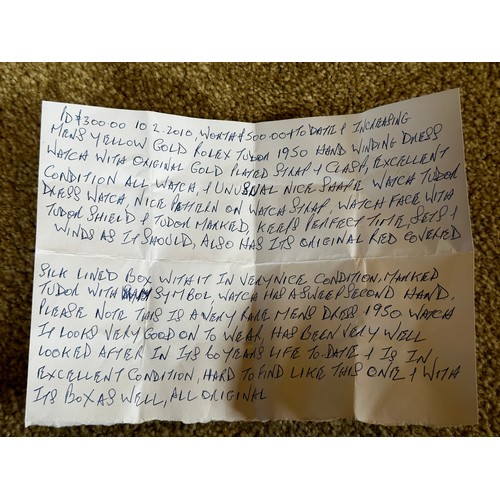 PD $300.00 10.2.2010, WORTH $500.00+ TO DATE & INCREASING
MENS YELLOW GOLD ROLEX TUDOR 1950 HAND WINDING DRESS
WATCH WITH ORIGINAL GOLD PLATED STRAP & CLASP, EXCELLENT
CONDITION ALL WATCH, & UNUSUAL NICE SHAPE WATCH TUDOR
DRESS WATCH, NICE PATTERN ON WATCH STRAP, WATCH FACE WITH
TUDOR SHIELD & TUDOR MARKED, KEEPS PERFECT TIME, SETS &
WINDS AS IT SHOULD, ALSO HAS ITS ORIGINAL RED COVERED
SILK LINED BOX WITH IT IN VERY NICE CONDITION, MARKED
TUDOR WITH SYMBOL, WATCH HAS A SWEEP SECOND HAND,
PLEASE NOTE THIS IS A VERY RARE MENS DRESS 1950 WATCH
IT LOOKS VERY GOOD ON TO WEAR, HAS BEEN VERY WELL
LOOKED AFTER IN ITS 60 YEARS LIFE TO-DATE & IS IN
EXCELLENT CONDITION, HARD TO FIND LIKE THIS ONE & WITH
ITS BOX AS WELL, ALL ORIGINAL